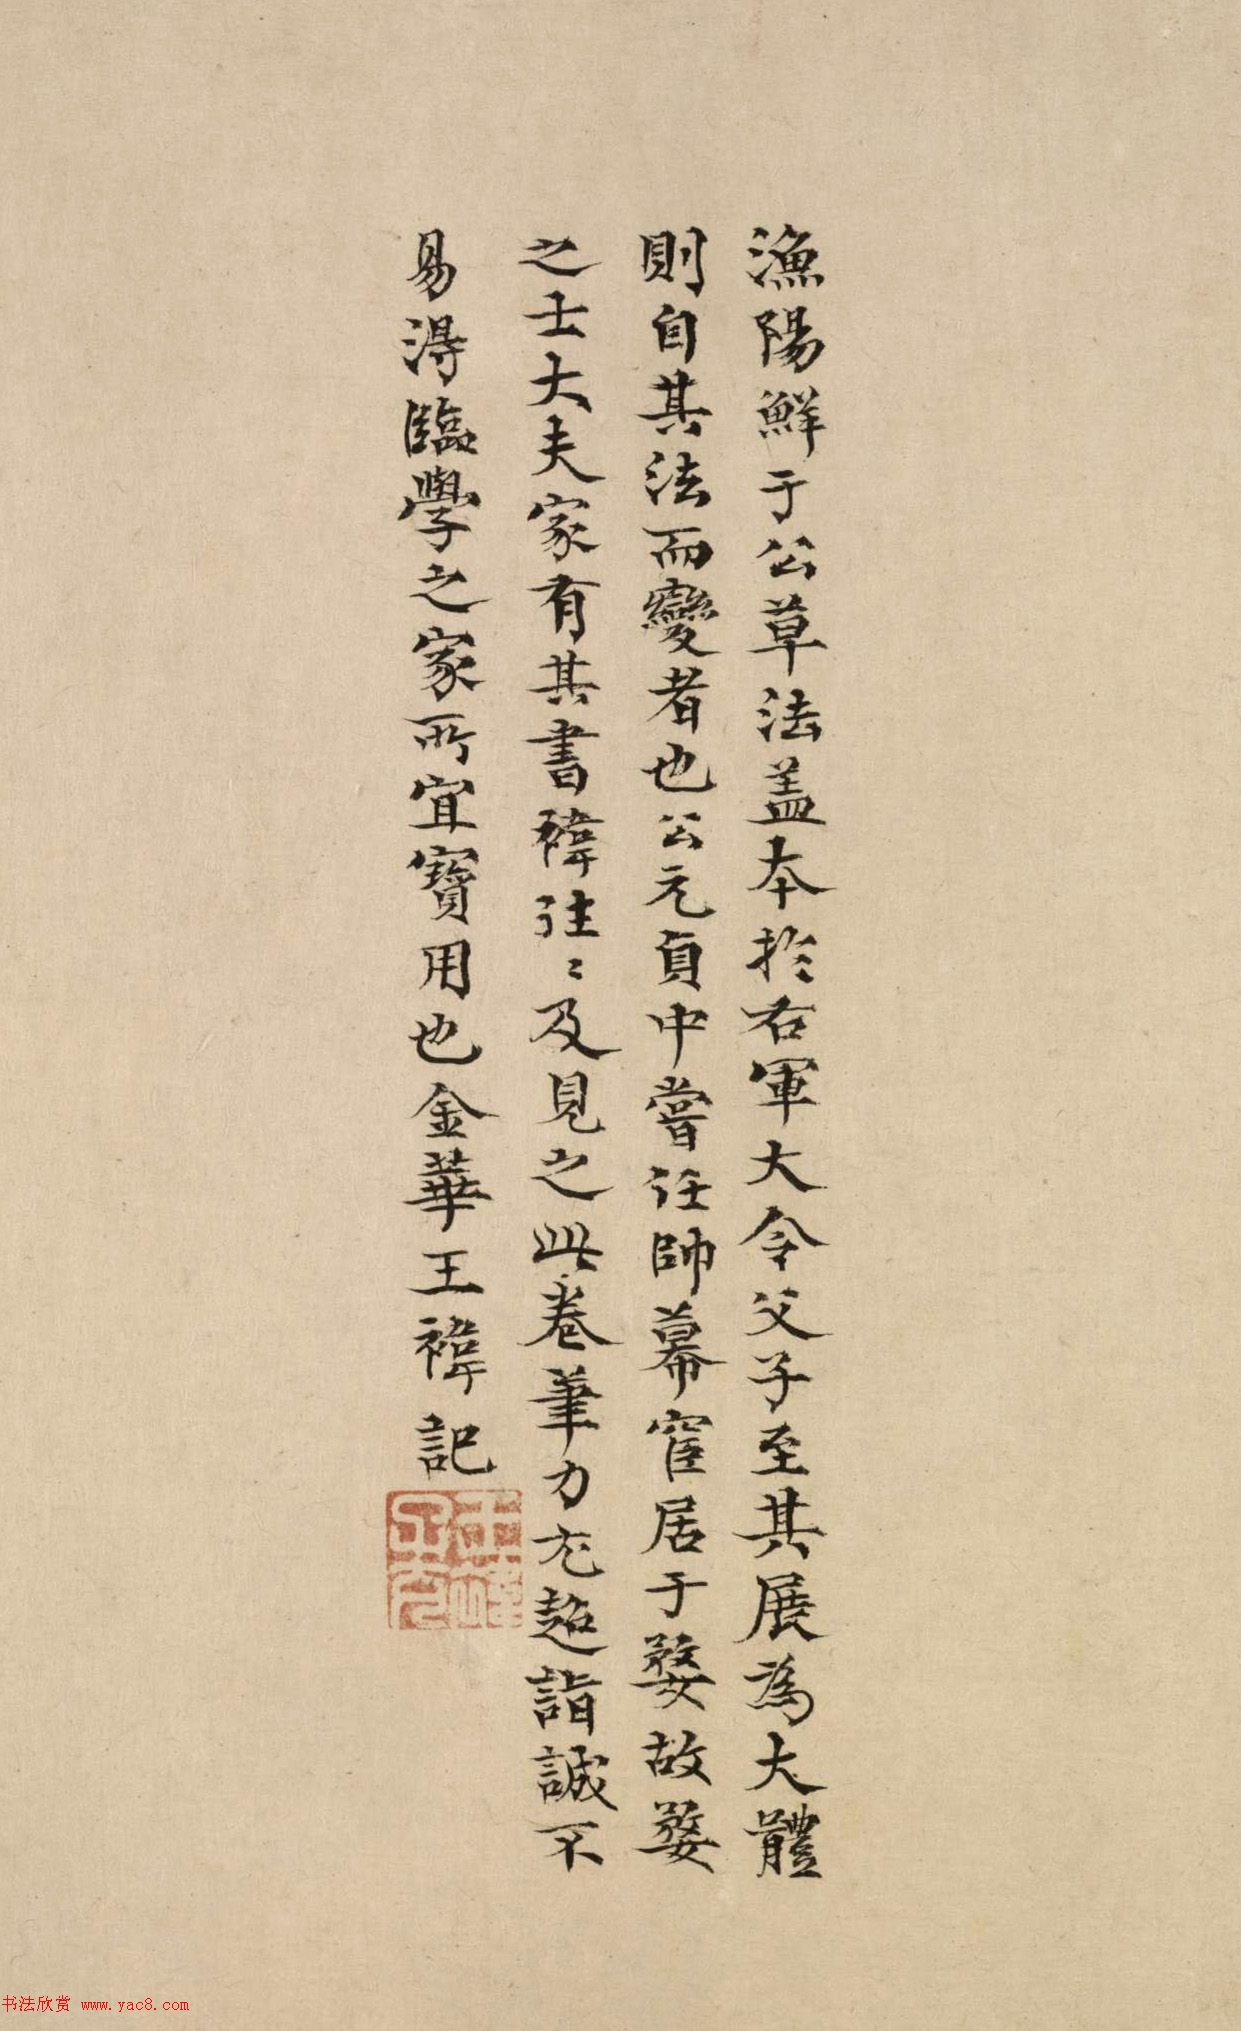 漁陽鮮于公草法盖本於右軍大令父子至其展為大體
則自其法而變者也公元貞中嘗任帥幕宦居于婺故婺
之士大夫家有其書禕往〻及見之此卷筆力尤超詣誠不
易得臨學之家所宜寶用也金華王禕記
书法欣赏 www.yac8.com